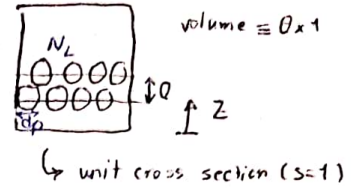 volume ≡ θ x 1
N_L
θ
Z
dp
↳ unit cross section (s=1)